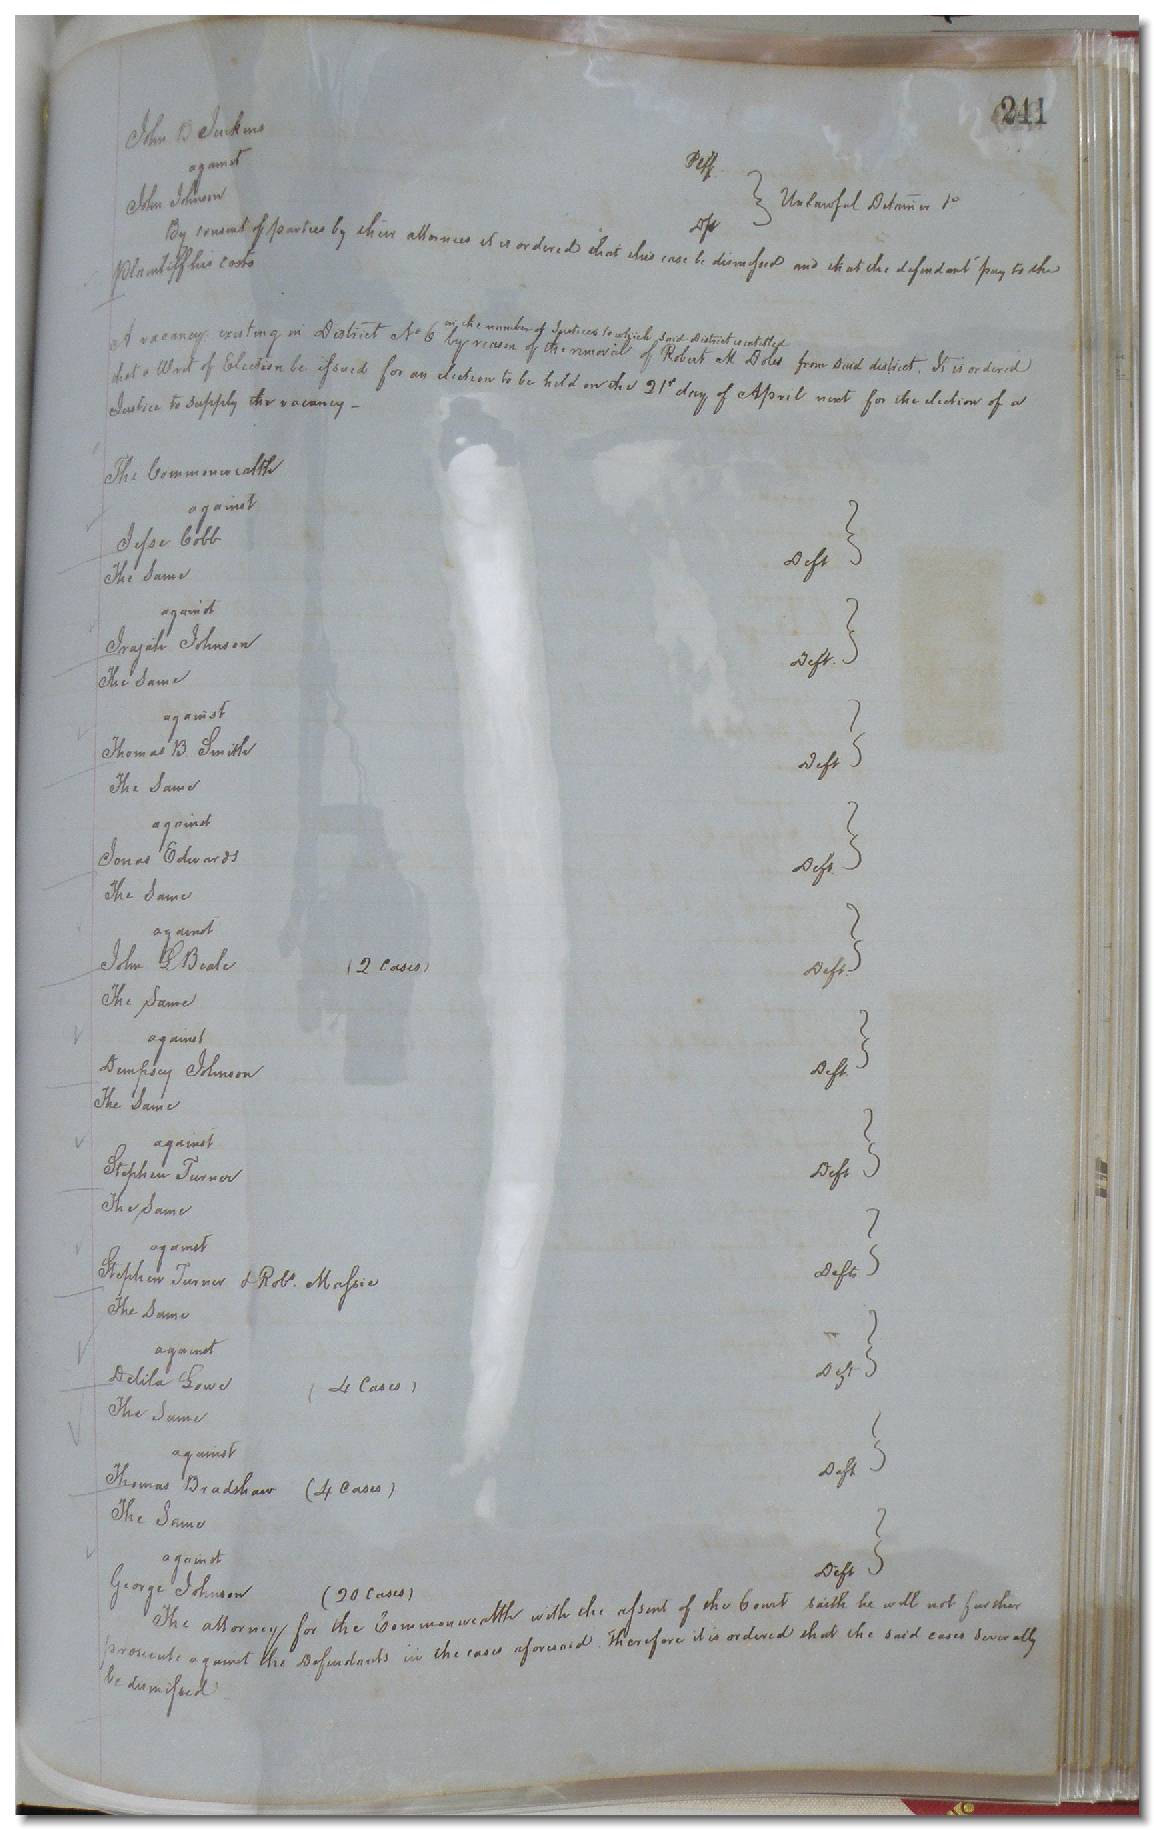 241
John B Jenkins Plff
against
John Johnson Dft } Unlawful Detainer
By consent of parties by their attornies it is ordered that this case be dismissed and that the defendant pay to the
Plaintiff his costs
A vacancy existing in District No 6 in the number of Justices to which said District is entitled by reason of the removal of Robert M Doles from said district. It is ordered
that a Writ of Election be issued for an election to be held on the 21st day of April next for the election of a
Justice to supply the vacancy –
The Commonwealth
against
Jesse Cobb Deft }
The Same
against
Irajah Johnson Deft. }
The Same
against
Thomas B. Smith Deft }
The Same
against
Jonas Edwards Deft }
The Same
against
John Beale (2 Cases) Deft. }
The Same
against
Dempsey Johnson Deft }
The Same
against
Stephen Turner Deft }
The Same
against
Stephen Turner & Robt. Massie Defts }
The Same
against
Delila Gowe (4 Cases) Deft }
The Same
against
Thomas Bradshaw (4 Cases) Deft }
The Same
against
George Johnson (20 Cases) Deft }
The attorney for the Commonwealth with the assent of the Court saith he will not further
prosecute against the Defendants in the cases aforesaid. Therefore it is ordered that the said cases severally
be dismissed